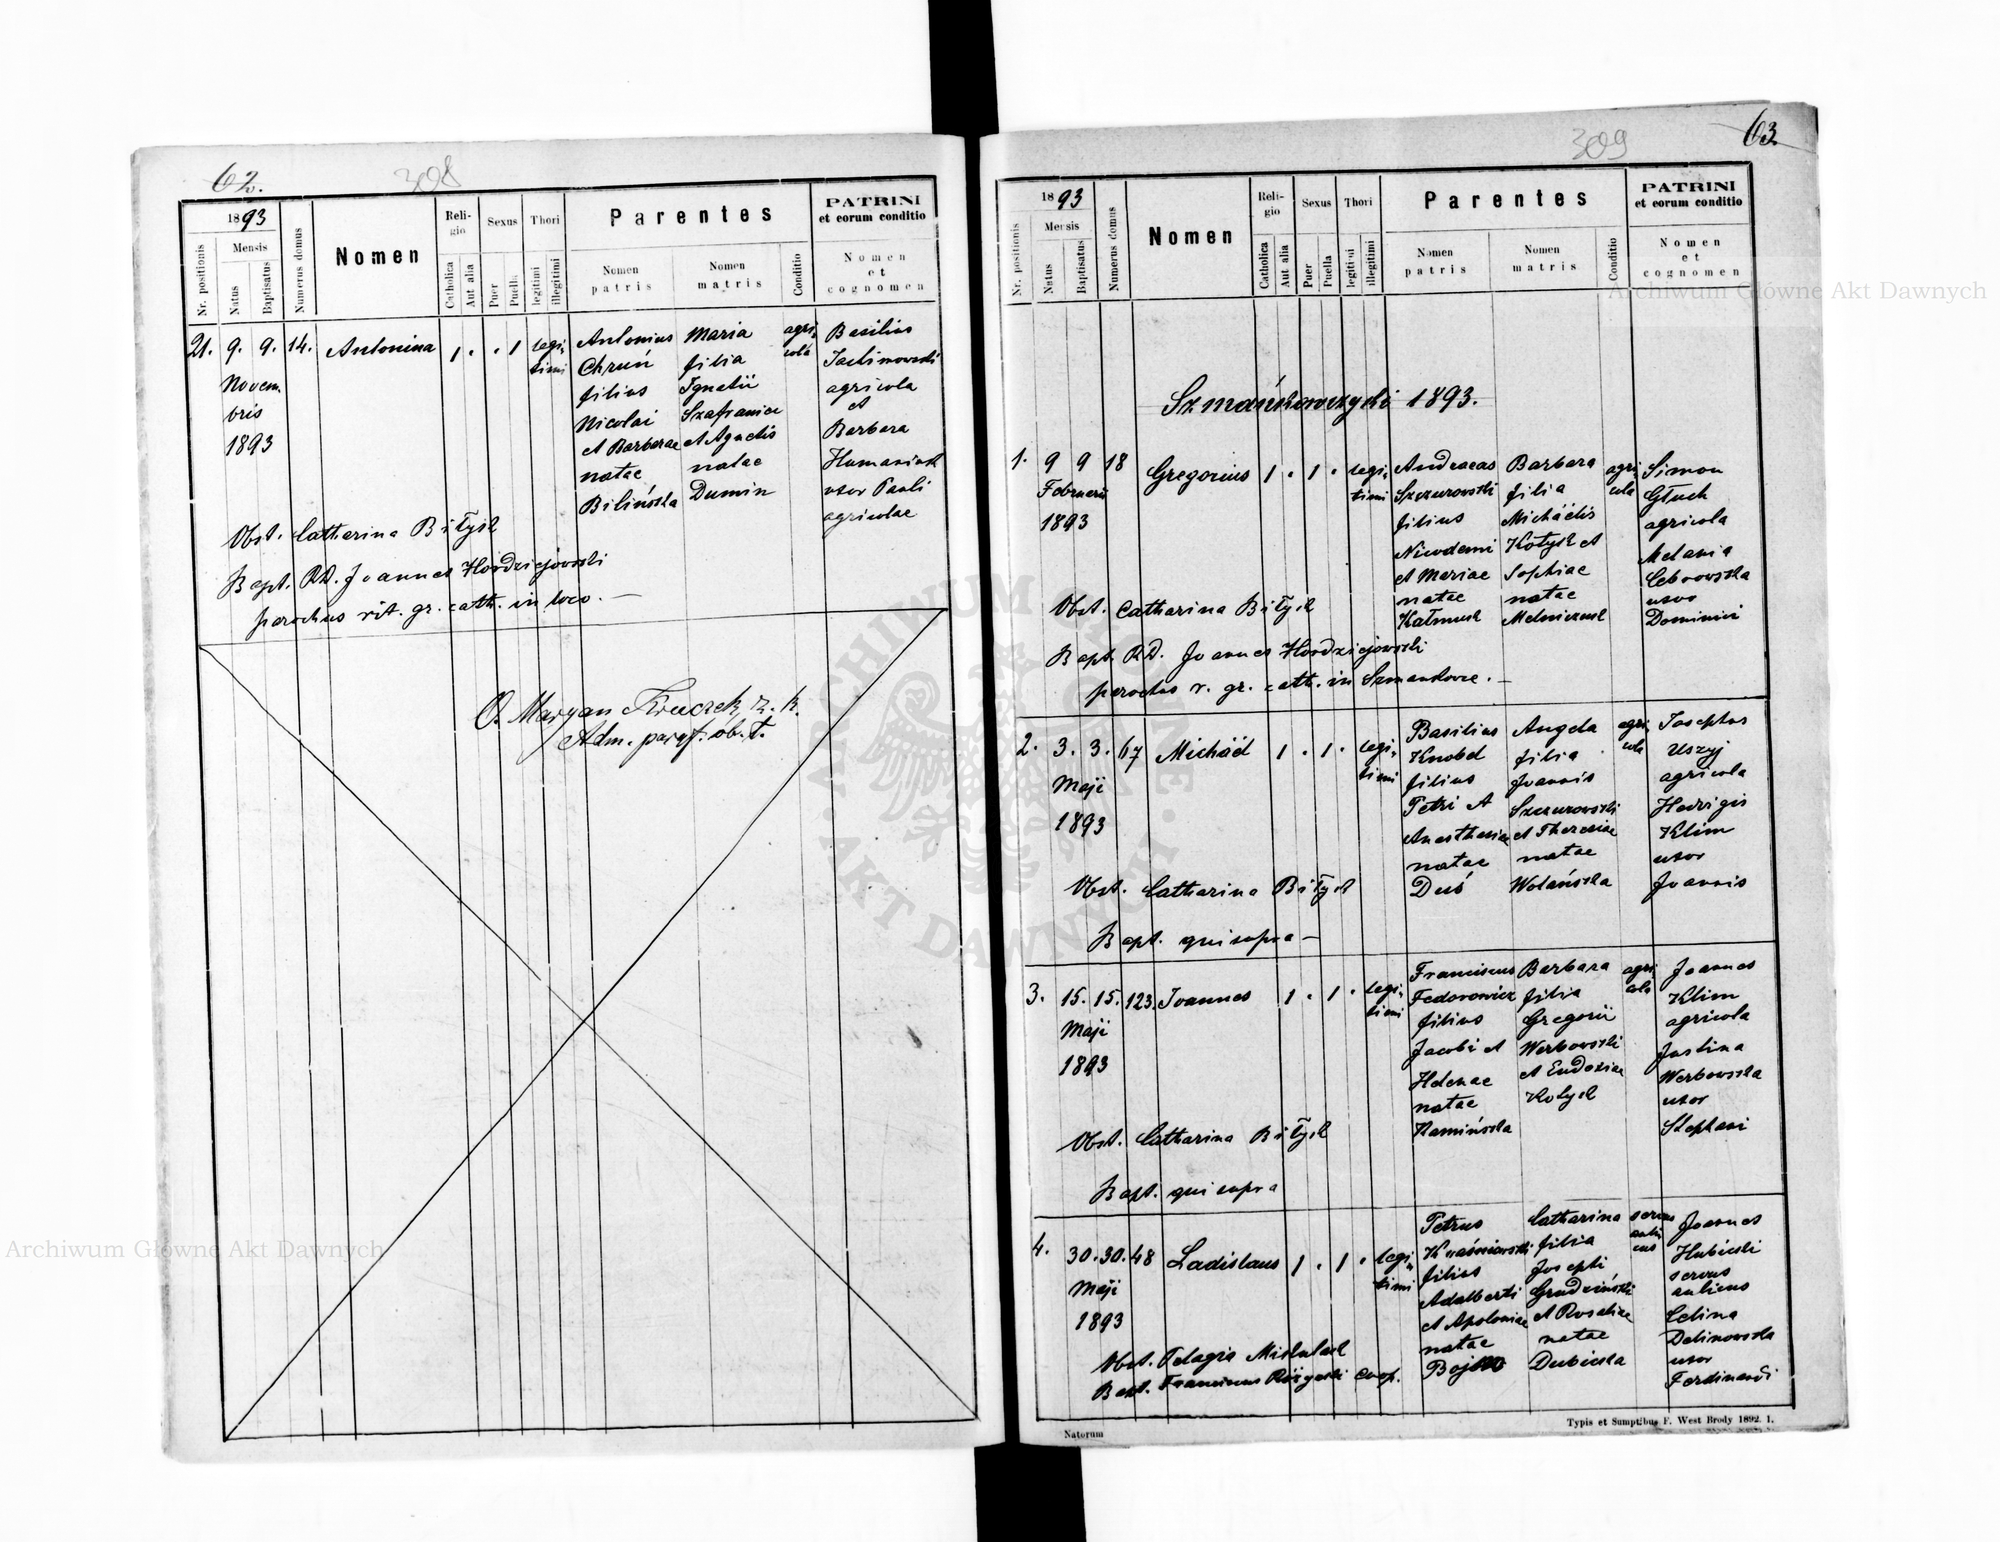 62.
308
1893
Nr. positionis
Mensis
Natus
Baptisatus
Numerus domus
Nomen
Religio
Catholica
Aut alia
Sexus
Puer
Puella
Thori
legitimi
illegitimi
Parentes
Nomen patris
Nomen matris
Conditio
PATRINI
et eorum conditio
Nomen
et
cognomen
21. 9. 9. 14. Antonina 1 . . 1 legitimi
Novembris
1893
Antonius
Chruń
filius
Nicolai
et Barbarae
natae
Bilińska
Maria
filia
Ignatii
Szafraniec
et Agnetis
natae
Dumin
agricola
Basilius
agricola
et
Barbara
Humaniuk
uxor Pauli
agricolae
Obst. Catharina Biłyk
Bapt. RD. Joannes Hordziejowski
parochus rit. gr. cath. in loco. —
O. Maryan Kruczek, r. k.
Adm. paraf. ob. ł.
63
309
1893
Nr. positionis
Mensis
Natus
Baptisatus
Numerus domus
Nomen
Religio
Catholica
Aut alia
Sexus
Puer
Puella
Thori
legitimi
illegitimi
Parentes
Nomen patris
Nomen matris
Conditio
PATRINI
et eorum conditio
Nomen
et
cognomen
Szmańkowczyki 1893.
1. 9 9 18 Gregorius 1 . 1 . legitimi
Februarii
1893
Andreas
Szczurowski
filius
Nicodemi
et Mariae
natae
Barbara
filia
Michäelis
Kołyk et
Sophiae
natae
Melniczuk
agricola
Simon
Głuch
agricola
Melania
Cebrowska
uxor
Dominici
Obst. Catharina Biłyk
Bapt. RD. Joannes Hordziejowski
parochus r. gr. cath. in Szmankowce. —
2. 3. 3. 67 Michäel 1 . 1 . legitimi
Maji
1893
Basilius
Knobel
filius
Petri et
Anasthasiae
natae
Duś
Angela
filia
Joannis
Szczurowski
et Theresiae
natae
Wolańska
agricola
Josephus
Uszyj
agricola
Hedvigis
Klim
uxor
Joannis
Obst. Catharina Biłyk
Bapt. qui supra —
3. 15. 15. 123. Joannes 1 . 1 . legitimi
Maji
1893
Franciscus
Fedorowicz
filius
Jacobi et
Helenae
natae
Kamińska
Barbara
filia
Gregorii
Werbowski
et Eudoxiae
Kołyk
agricola
Joannes
Klim
agricola
Justina
Werbowska
uxor
Stephani
Obst. Catharina Biłyk
Bapt. qui supra
4. 30. 30. 48 Ladislaus 1 . 1 . legitimi
Maji
1893
Petrus
Kraśniewski
filius
Adalberti
et Apoloniae
natae
Catharina
filia
Josephi
Grudziński
et Rosaliae
natae
Dubicka
servus
aulicus
Joannes
Hubicki
servus
aulicus
Celina
Delinowska
uxor
Ferdinandi
Obst. Pelagia
Bapt. Franciscus coop.
Natorum
Typis et Sumptibus F. West Brody 1892. 1.
ARCHIWUM GŁÓWNE AKT DAWNYCH
Archiwum Główne Akt Dawnych
Archiwum Główne Akt Dawnych